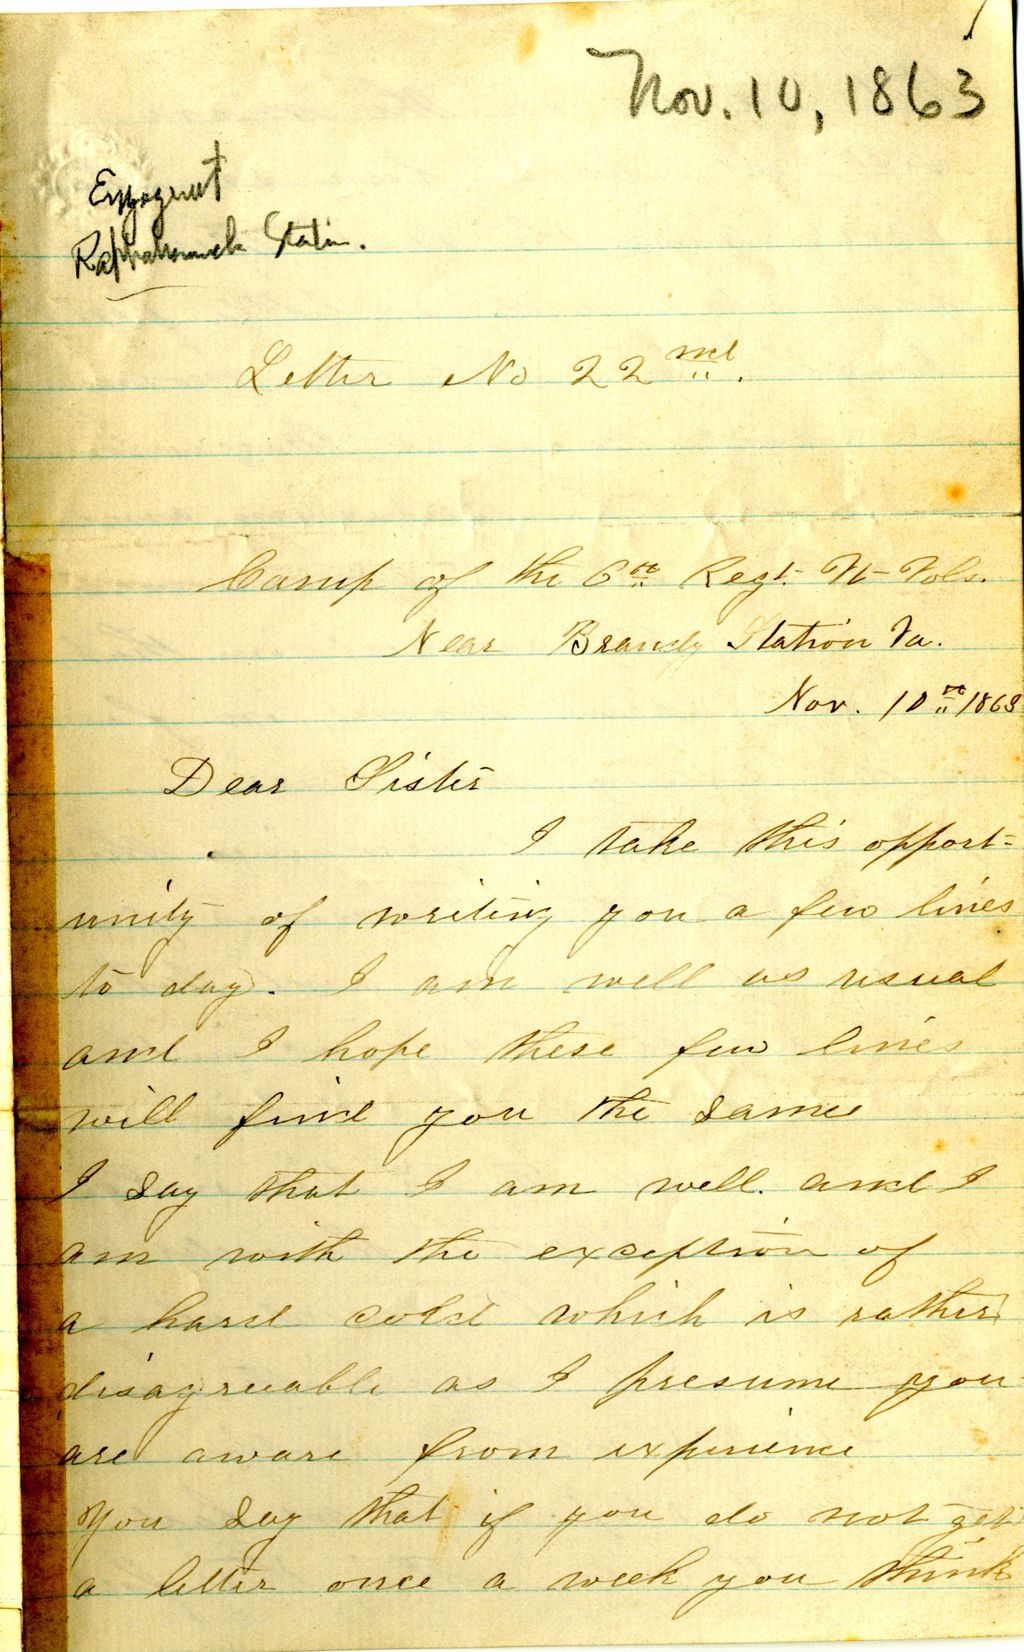 Nov. 10, 1863
Engagemt
Raphahannock Station.
Letter No 22nd.
Camp of the 6th Regt. Vt Vols.
Near Brandy Station Va.
Nov. 10th 1863
Dear Sister
I take this opport=
unity of writing you a few lines
to day. I am well as usual
and I hope these few lines
will find you the same
I say that I am well. and I
am with the exception of
a hard cold which is rather
disagreeable as I presume you
are aware from experience
You say that if you do not get
a letter once a week you think